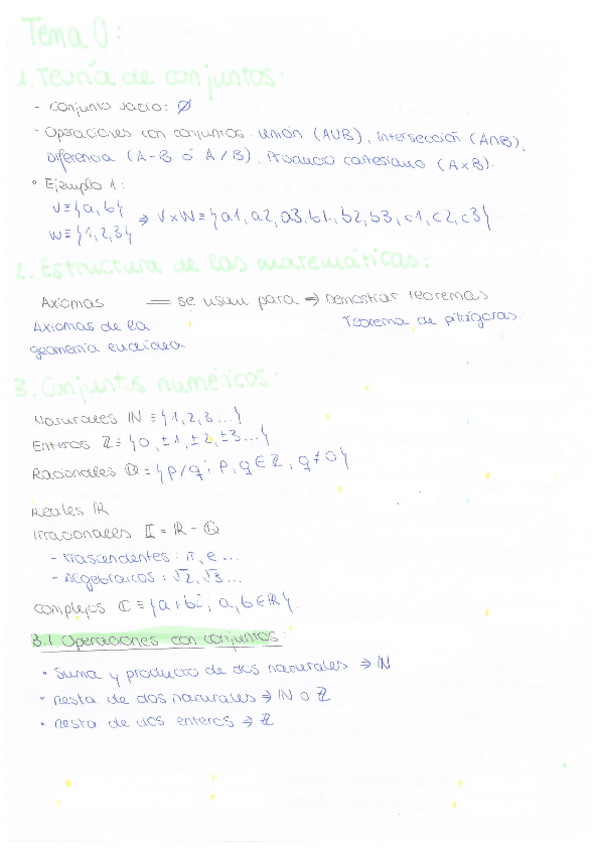 Tema 0:
1. Teoría de conjuntos:
- Conjunto vacío: Ø
- Operaciones con conjuntos: Unión (A∪B), Intersección (A∩B),
Diferencia (A-B ó A/B), Producto cartesiano (A×B).
• Ejemplo 1:
V≡{a,b}
W≡{1,2,3}
⇒ V×W≡{a1, a2, a3, b1, b2, b3, c1, c2, c3}
2. Estructura de las matemáticas:
Axiomas = se usan para ⇒ Demostrar teoremas
Axiomas de la geometría euclídea
Teorema de pitágoras
3. Conjuntos numéricos:
Naturales ℕ≡{1,2,3...}
Enteros ℤ≡{0, ±1, ±2, ±3...}
Racionales ℚ≡{p/q; p,q∈ℤ, q≠0}
Reales ℝ
Irracionales 𝕀 = ℝ - ℚ
- Trascendentes: π, e...
- Algebraicos: √2, √3...
Complejos ℂ≡{a+bi; a,b∈ℝ}
3.1 Operaciones con conjuntos:
• Suma y producto de dos naturales ⇒ ℕ
• Resta de dos naturales ⇒ ℕ o ℤ
• Resta de dos enteros ⇒ ℤ